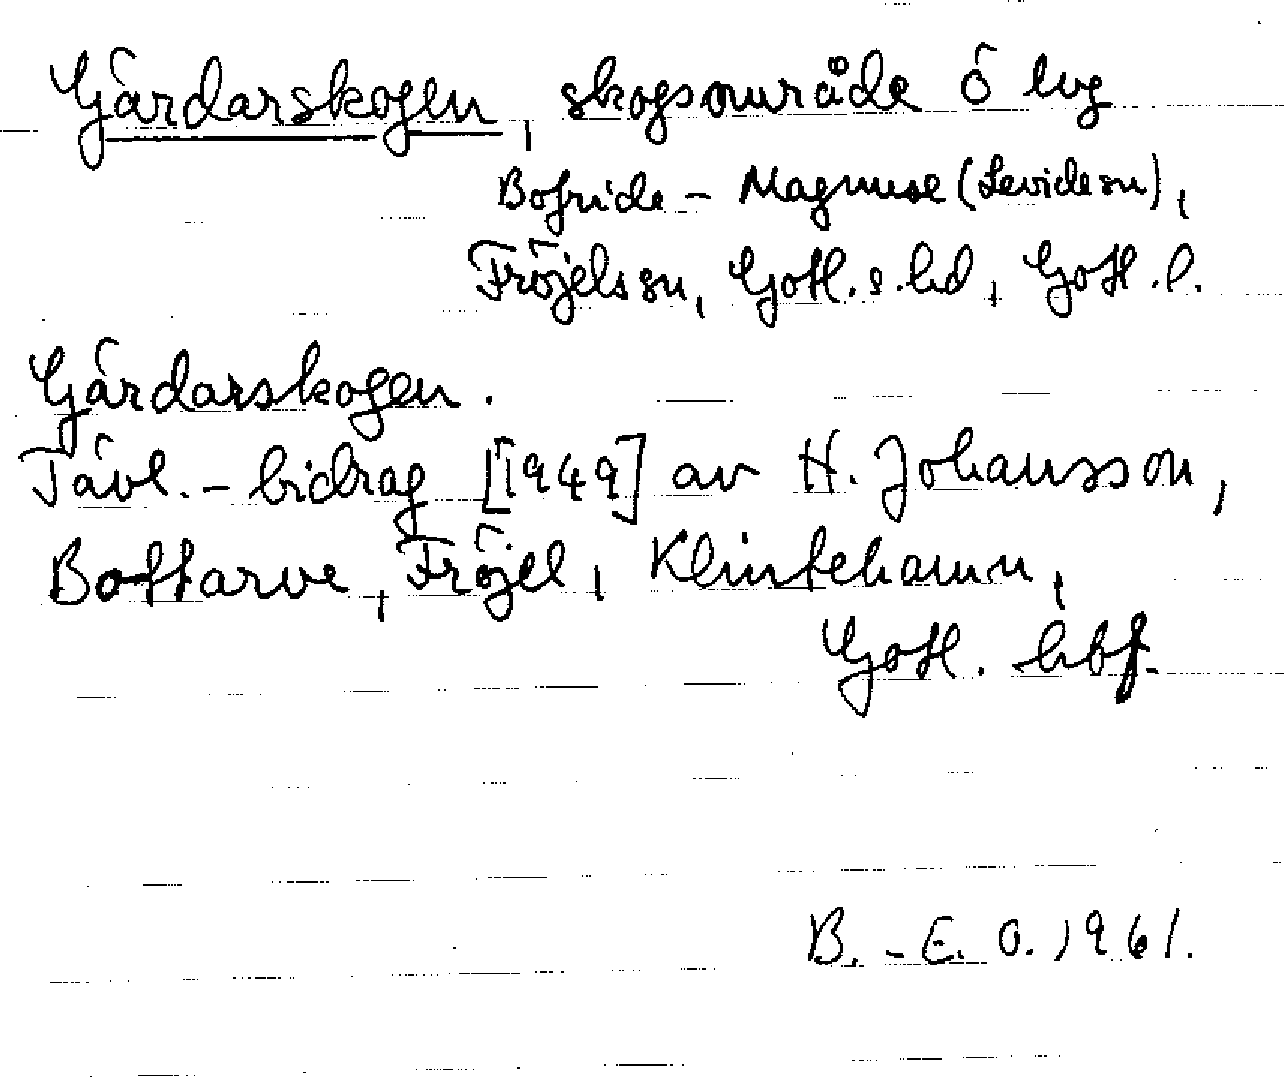 Gärdarskogen, skogsområde Ö lvg
Bofride – Magnuse (Levide sn),
Fröjels sn, Gotl. s. hd, Gotl. l.
Gärdarskogen.
Tävl.-bidrag [1949] av H. Johansson,
Bottarve, Fröjel, Klintehamn,
Gotl. hbf.
B.-E. O. 1961.